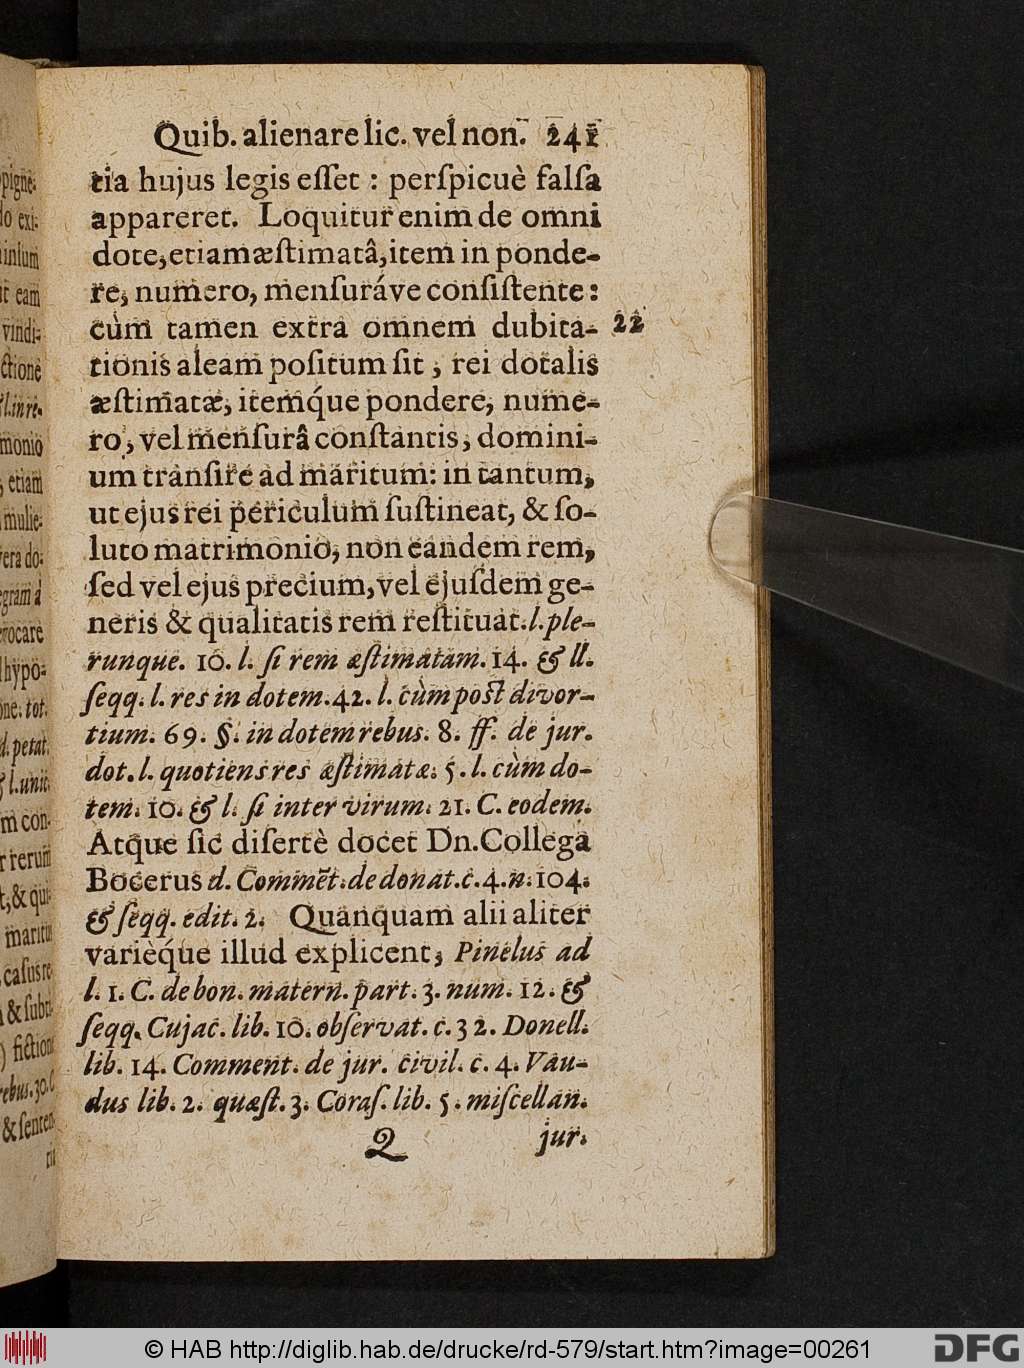 Quib. alienare lic. vel non. 241
tia hujus legis eſſet : perſpicuè falſa
appareret. Loquitur enim de omni
dote, etiam æſtimatâ, item in ponde-
re, numero, menſuráve conſiſtente:
cùm tamen extra omnem dubita- 22
tionis aleam poſitum ſit, rei dotalis
æſtimatæ, itemq́ue pondere, nume-
ro, vel menſurâ conſtantis, domini-
um tranſire ad maritum: in tantum,
ut ejus rei periculum ſuſtineat, & ſo-
luto matrimonio, non eandem rem,
ſed vel ejus precium, vel ejuſdem ge-
neris & qualitatis rem reſtituat. l. ple-
runque. 10. l. ſi rem æſtimatam. 14. & ll.
ſeqq. l. res in dotem. 42. l. cùm poſt divor-
tium. 69. §. in dotem rebus. 8. ff. de jur.
dot. l. quotiens res æſtimatæ. 5. l. cùm do-
tem. 10. & l. ſi inter virum. 21. C. eodem.
Atque ſic diſertè docet Dn. Collega
Bocerus d. Commēt. de donat. c. 4. n. 104.
& ſeqq. edit. 2. Quanquam alii aliter
varièq́ue illud explicent, Pinelus ad
l. 1. C. de bon. matern. part. 3. num. 12. &
ſeqq. Cujac. lib. 10. obſervat. c. 32. Donell.
lib. 14. Comment. de jur. civil. c. 4. Vau-
dus lib. 2. quæſt. 3. Coraſ. lib. 5. miſcellan.
Q jur.
pigne-
do exi-
ut eam
vindi-
ctione
l. in re-
monio
, etiam
mulie-
vera do-
egram à
evocare
hypo-
one. tot.
d. petat.
& l. unic.
m con-
r rerum
t, & qui-
maritu
caſus re
& ſubti-
) fiction
rebus. 30. C
& ſenten-
tia
© HAB http://diglib.hab.de/drucke/rd-579/start.htm?image=00261
DFG